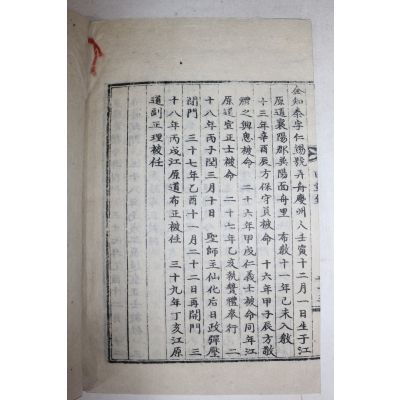 金知泰字仁錫號丹舟慶州人壬寅十二月一日生于江
原道襄陽郡巽陽面舟里 布敎十一年己未入敎
十三年辛酉辰方保守員被命 十六年甲子辰方敬
禮之興惠被命 二十六年甲戌仁義士被命同年江
原道宣正士被命 二十七年乙亥執贊禮奉行 二
十八年丙子閏三月十日 聖師主仙化后日政彈壓
閉門 三十七年乙酉十一月二十二日再開門 三
十八年丙戌江原道布正被任 三十九年丁亥江原
道副正理被任